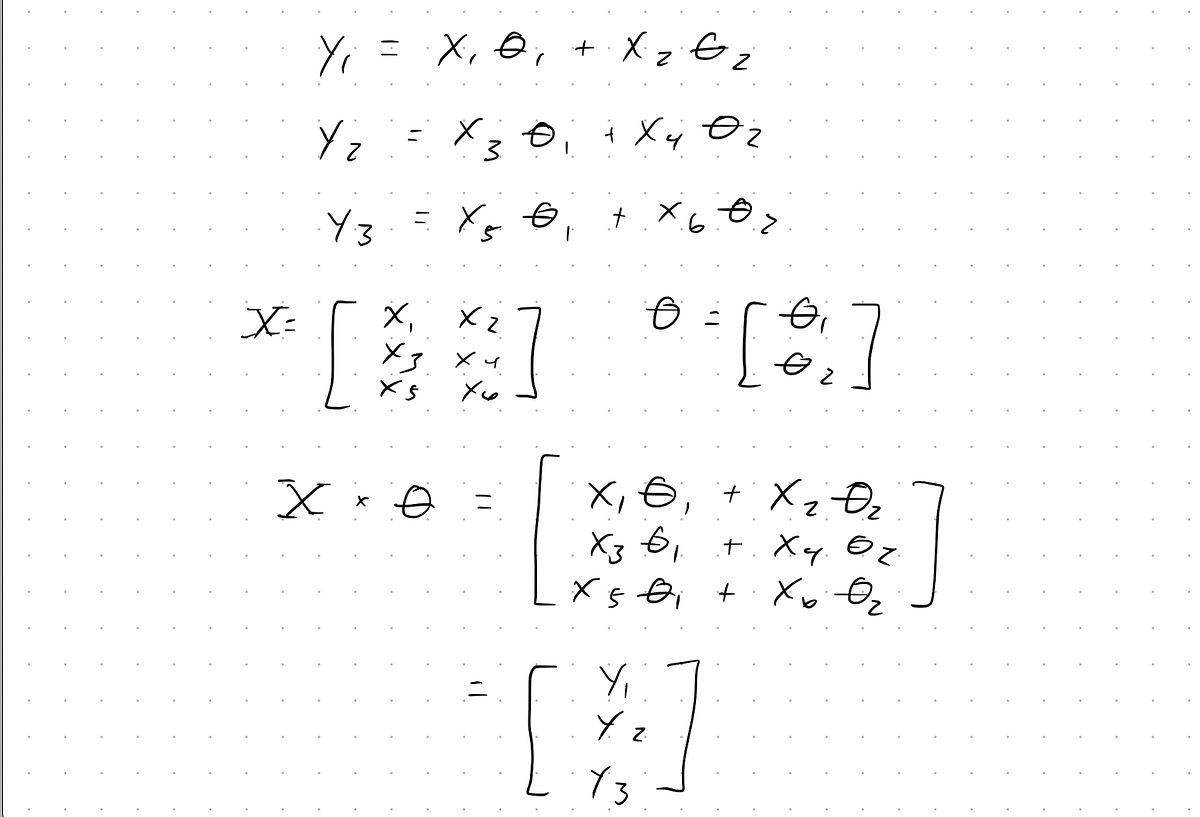 y₁ = x₁ θ₁ + x₂ θ₂
y₂ = x₃ θ₁ + x₄ θ₂
y₃ = x₅ θ₁ + x₆ θ₂
X = [ x₁ x₂ θ = [ θ₁
x₃ x₄ θ₂ ]
x₅ x₆ ]
X × θ = [ x₁ θ₁ + x₂ θ₂
x₃ θ₁ + x₄ θ₂
x₅ θ₁ + x₆ θ₂ ]
= [ y₁
y₂
y₃ ]